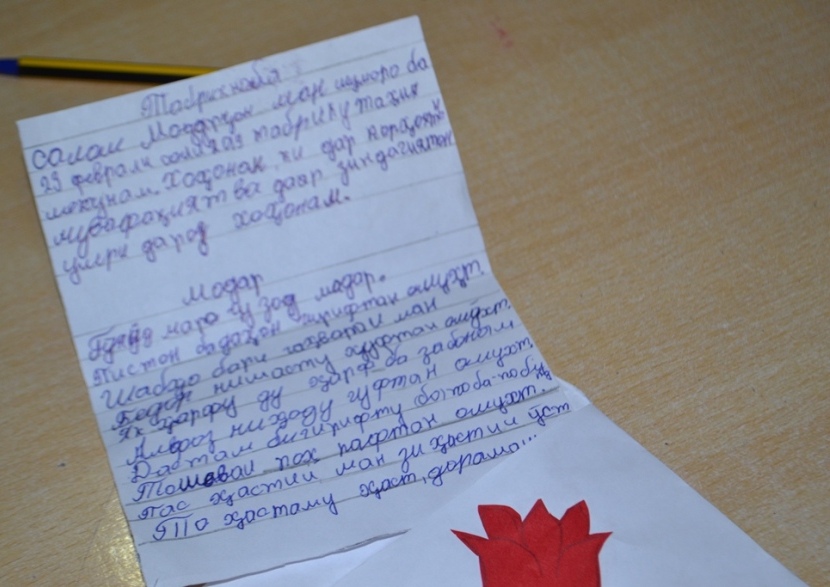 Табрикнома
салом Модарҷон ман шуморо ба
23 феврали солҳаз табрику таҳния
мекунам. Хоҳонам ки дар корҳоятон
мувафақият ва даар зиндагиятон
умри дароз хоҳонам.
Модар
Гӯянд маро чу зод модар.
Пистон бадаҳон гирифтан омухт.
Шабҳо бари гаҳвараи ман
Бедор нишасту хуфтан омухт.
Як ҳарфу ду ҳарф ба забоным
Алфоз ниҳоду гуфтан омухт.
Дастам бигирифту бо-поба-побурд
То шеваи рох рафтан омухт.
Пас ҳастии ман зи ҳастии ӯст
То ҳастаму ҳаст, дорамаш